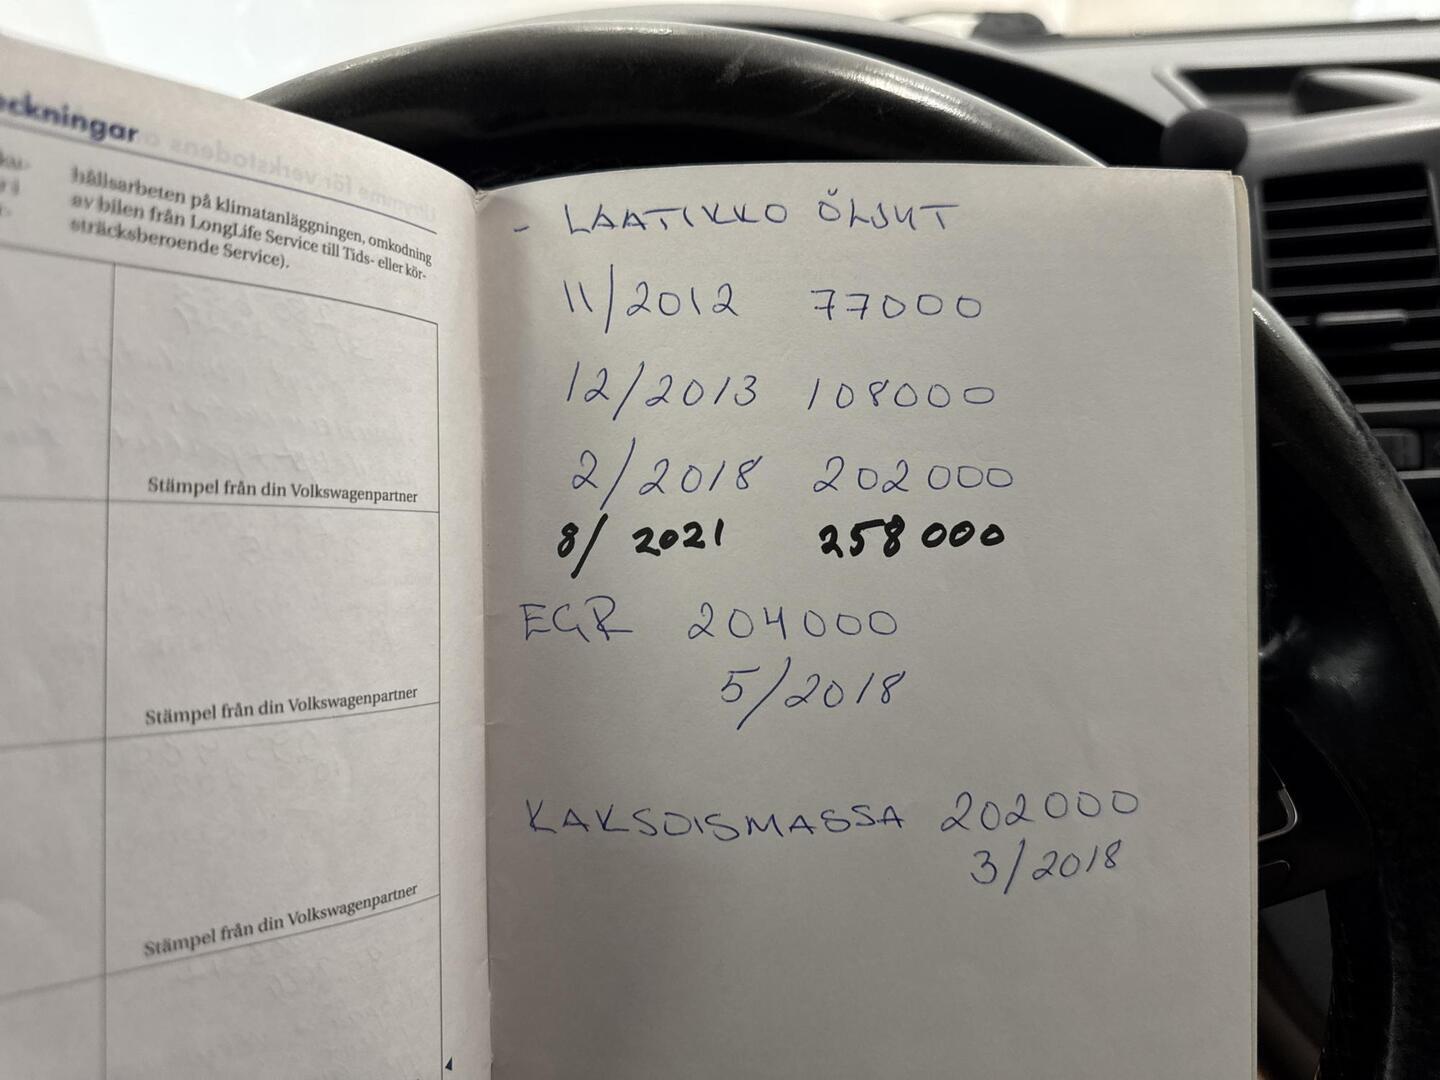 eckningar
hållsarbeten på klimatanläggningen, omkodning
av bilen från LongLife Service till Tids- eller kör-
sträcksberoende Service).
Stämpel från din Volkswagenpartner
Stämpel från din Volkswagenpartner
Stämpel från din Volkswagenpartner
- LAATIKKO ÖLJYT
11/2012 77000
12/2013 108000
2/2018 202000
8/2021 258000
EGR 204000
5/2018
KAKSOISMASSA 202000
3/2018